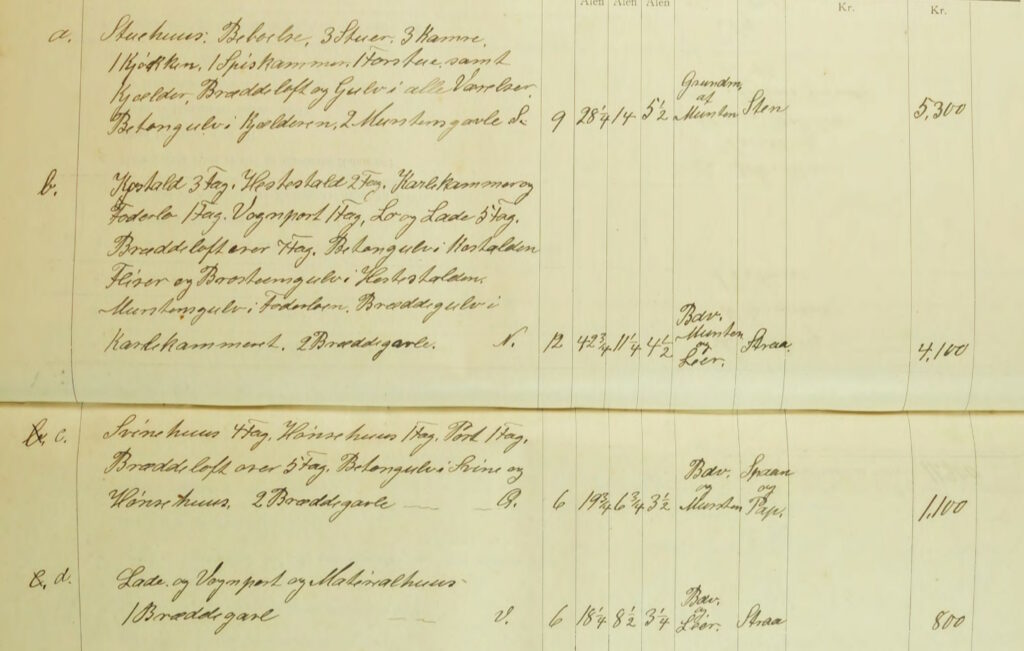 Alen Alen Alen Kr. Kr.
a. Stuehuus: Beboelse, 3 Stuer. 3 Kamre,
1 Kjøkken, 1 Spiskammer, 1 Forstue, samt
Kjælder, Bræddeloft og Gulv i alle Værelser. Grundm.
af
Betongulv i Kjælderen, 2 Murstensgavle S. 9 28 1/4 14 5 1/2 Mursten Sten 5,300
b. Kostald 3 Fag. Hestestald 2 Fag, Karlekammer og
Foderlo 1 Fag. Vognport 1 Fag, Lo og Lade 5 Fag.
Bræddeloft over 7 Fag. Betongulv i Kostalden
Fliser og Brostensgulv i Hestestalden.
Murstensgulv i Foderloen. Bræddegulv i Bdv.
Mursten
og
Karlekammeret. 2 Bræddegavle. N. 12 42 3/4 11 1/4 4 1/2 Leer. Straa. 4,100
c. Svinehuus 4 Fag, Hønsehuus 1 Fag, Port 1 Fag,
Bræddeloft over 5 Fag, Betongulv i Svine og Bdv. Spaan
og og
Hønsehuus, 2 Bræddegavle Ø. 6 19 3/4 6 3/4 3 1/2 Mursten Pap. 1,100
d. Lade og Vognport og Materialhuus Bdv.
og
1 Bræddegavl V. 6 18 1/4 8 1/2 3 1/4 Leer. Straa 800